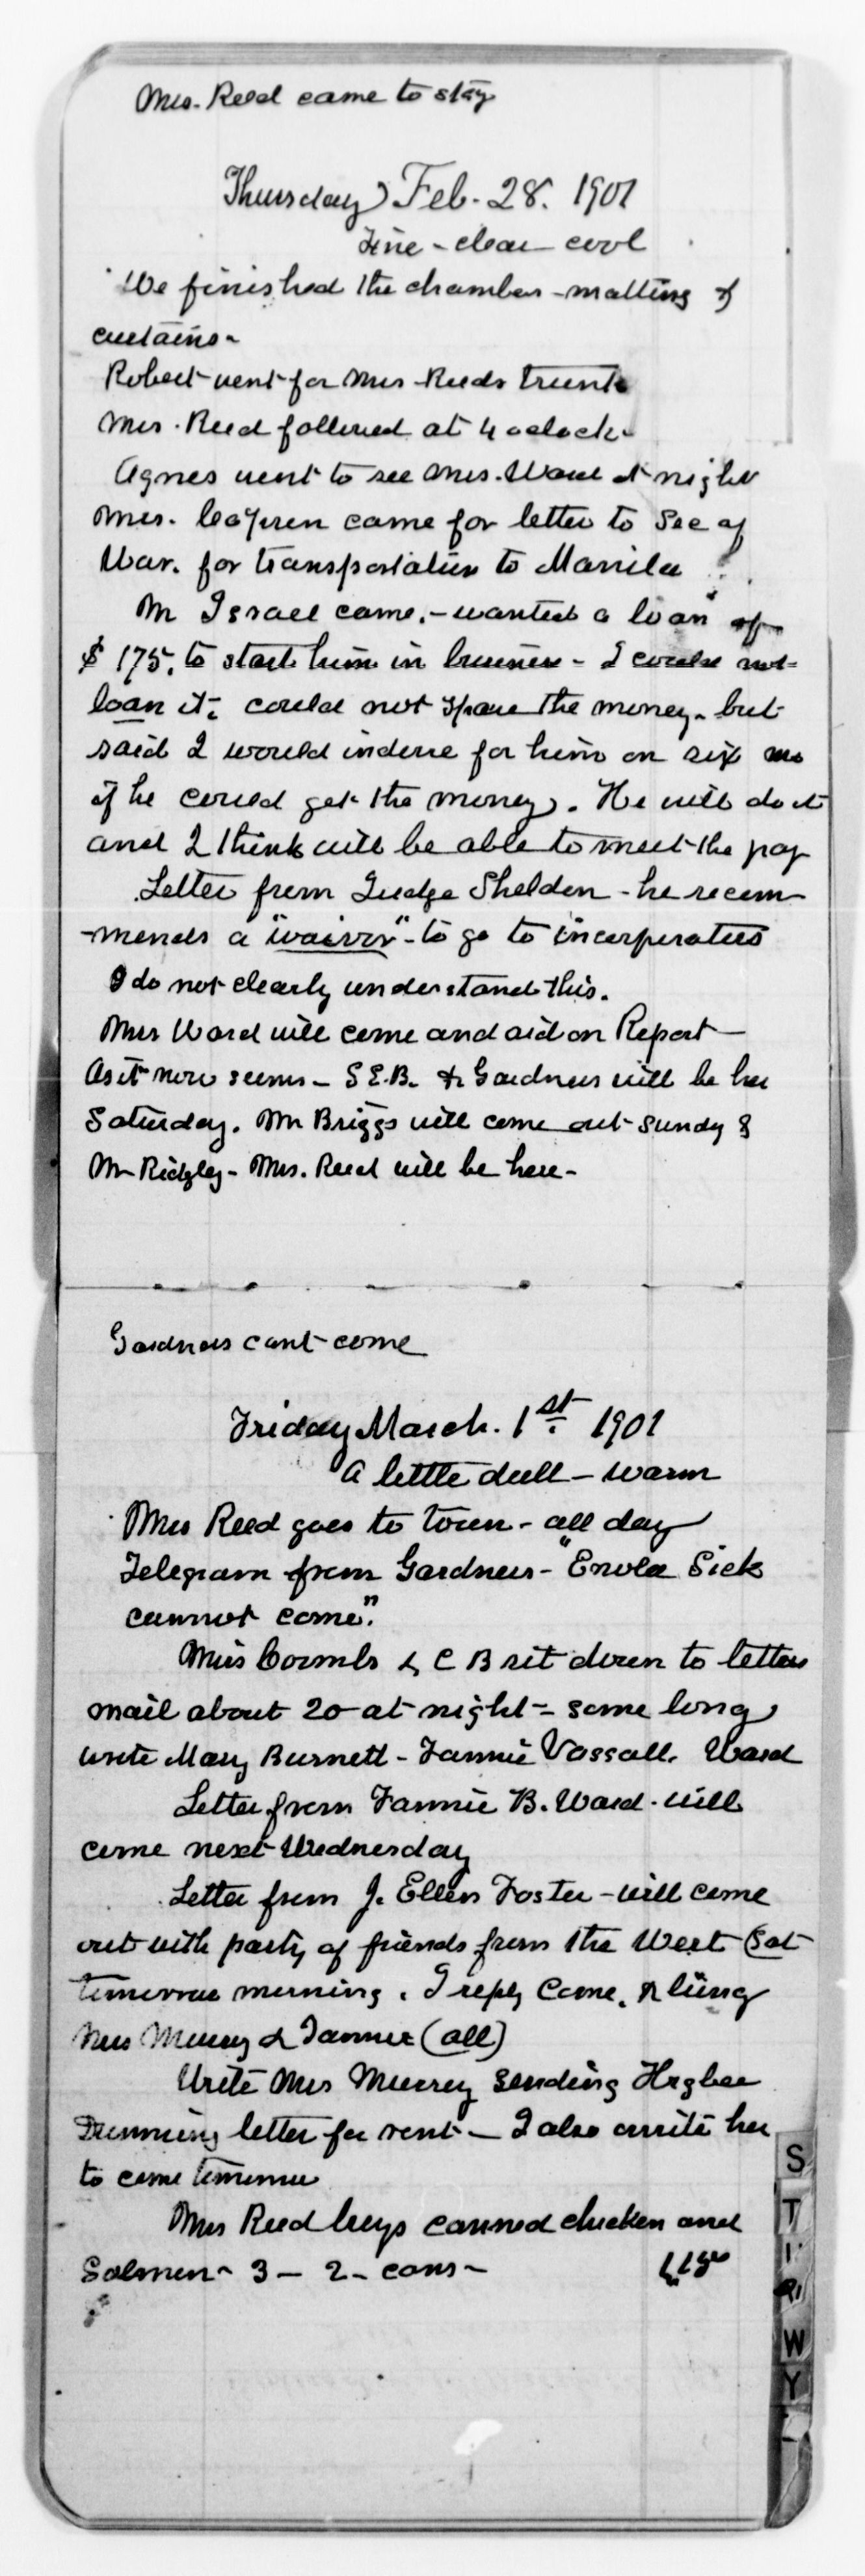 Mrs. Reed came to stay
Thursday Feb. 28. 1901
Fine - clear - cool
We finished the chamber - matting &
curtains -
Robert went for Mrs Reeds trunk
Mrs. Reed followed at 4 oclock -
Agnes went to see Mrs. Ward at night
Mrs. came for letter to Sec of
War. for transportation to Manila
Mr Israel came. - wanted a loan of
$ 175. to start him in business - I could not
loan it; could not spare the money - but
said I would indorse for him on six mo
if he could get the money. He will do it
and I think will be able to meet the pay
Letter from Judge Sheldon - he recom
-mends a "waiver" - to go to incorporators
I do not clearly understand this.
Mrs Ward will come and aid on Report -
As it now seems - S E. B. & Gardners will be here
Saturday. Mr Briggs will come out Sundy &
Mr Ridgley - Mrs. Reed will be here -
Gardners cant come
Friday March. 1st 1901
A little dull - warm
Mrs Reed goes to town - all day
Telegram from Gardners - "Enola Sick
cannot come".
Miss Coombs & C B sit down to letters
mail about 20 at night - some long
write Mary Burnett - Fannie Vassall. Ward
Letter from Fannie B. Ward - will
come next Wednesday
Letter from J. Ellen Foster - will come
out with party of friends from the West (Sat
tomorrow morning. I reply Come, & bring
Mrs Mussey & Tanner (all)
Write Mrs Mussey sending Higbee
Dunning letter for rent - I also write her
to come tomorrow
Mrs Reed buys canned chicken and
Salmon - 3 - 2 - cans -
S
T
W
Y